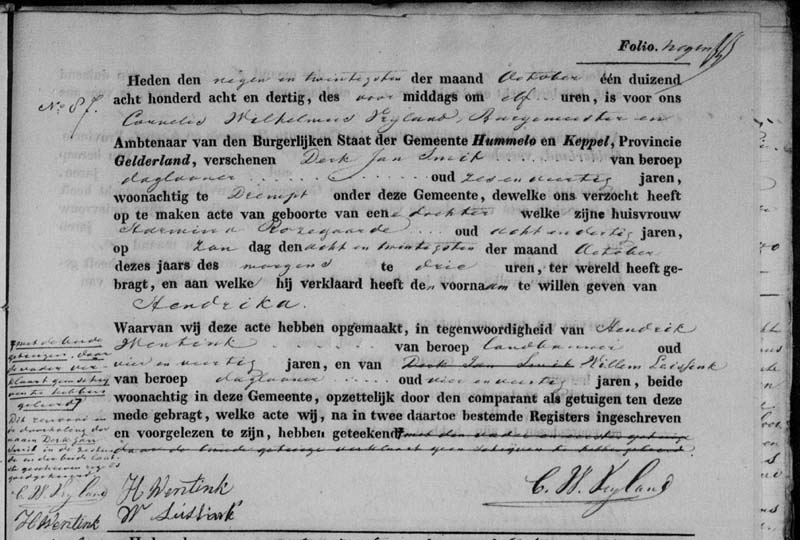 Folio.
N° 87.
Heden den negen en twintigsten der maand October één duizend
acht honderd acht en dertig, des voor middags om elf uren, is voor ons
Cornelis Wilhelmus Vryland, Burgemeester en
Ambtenaar van den Burgerlijken Staat der Gemeente Hummelo en Keppel, Provincie
Gelderland, verschenen Derk Jan Smit van beroep
daglooner oud zes en veertig jaren,
woonachtig te Drempt onder deze Gemeente, dewelke ons verzocht heeft
op te maken acte van geboorte van eene dochter welke zijne huisvrouw
Harmina Rozegaarde oud acht en dertig jaren,
op Zon dag den acht en twintigsten der maand October
dezes jaars des morgens te drie uren, ter wereld heeft ge-
bragt, en aan welke hij verklaard heeft den voornaam te willen geven van
Hendrika.
Waarvan wij deze acte hebben opgemaakt, in tegenwoordigheid van Hendrik
Wentink van beroep landbouwer oud
vier en veertig jaren, en van Derk Jan Smit Willem Leissink
van beroep daglooner oud vier en veertig jaren, beide
woonachtig in deze Gemeente, opzettelijk door den comparant als getuigen ten deze
mede gebragt, welke acte wij, na in twee daartoe bestemde Registers ingeschreven
en voorgelezen te zijn, hebben geteekend met den vader en eersten getuige
daar de tweede getuige verklaart geen schrijven te hebben geleerd.
met de beide
getuigen, daar
de vader ver-
klaart geen schrij-
ven te hebben
geleerd
Dit renvooi en
de doorhaling der
naam Derk Jan
Smit in de
goedgekeurd
C. W. Vryland
H Wentink
H Wentink
W Leissink
C. W. Vryland